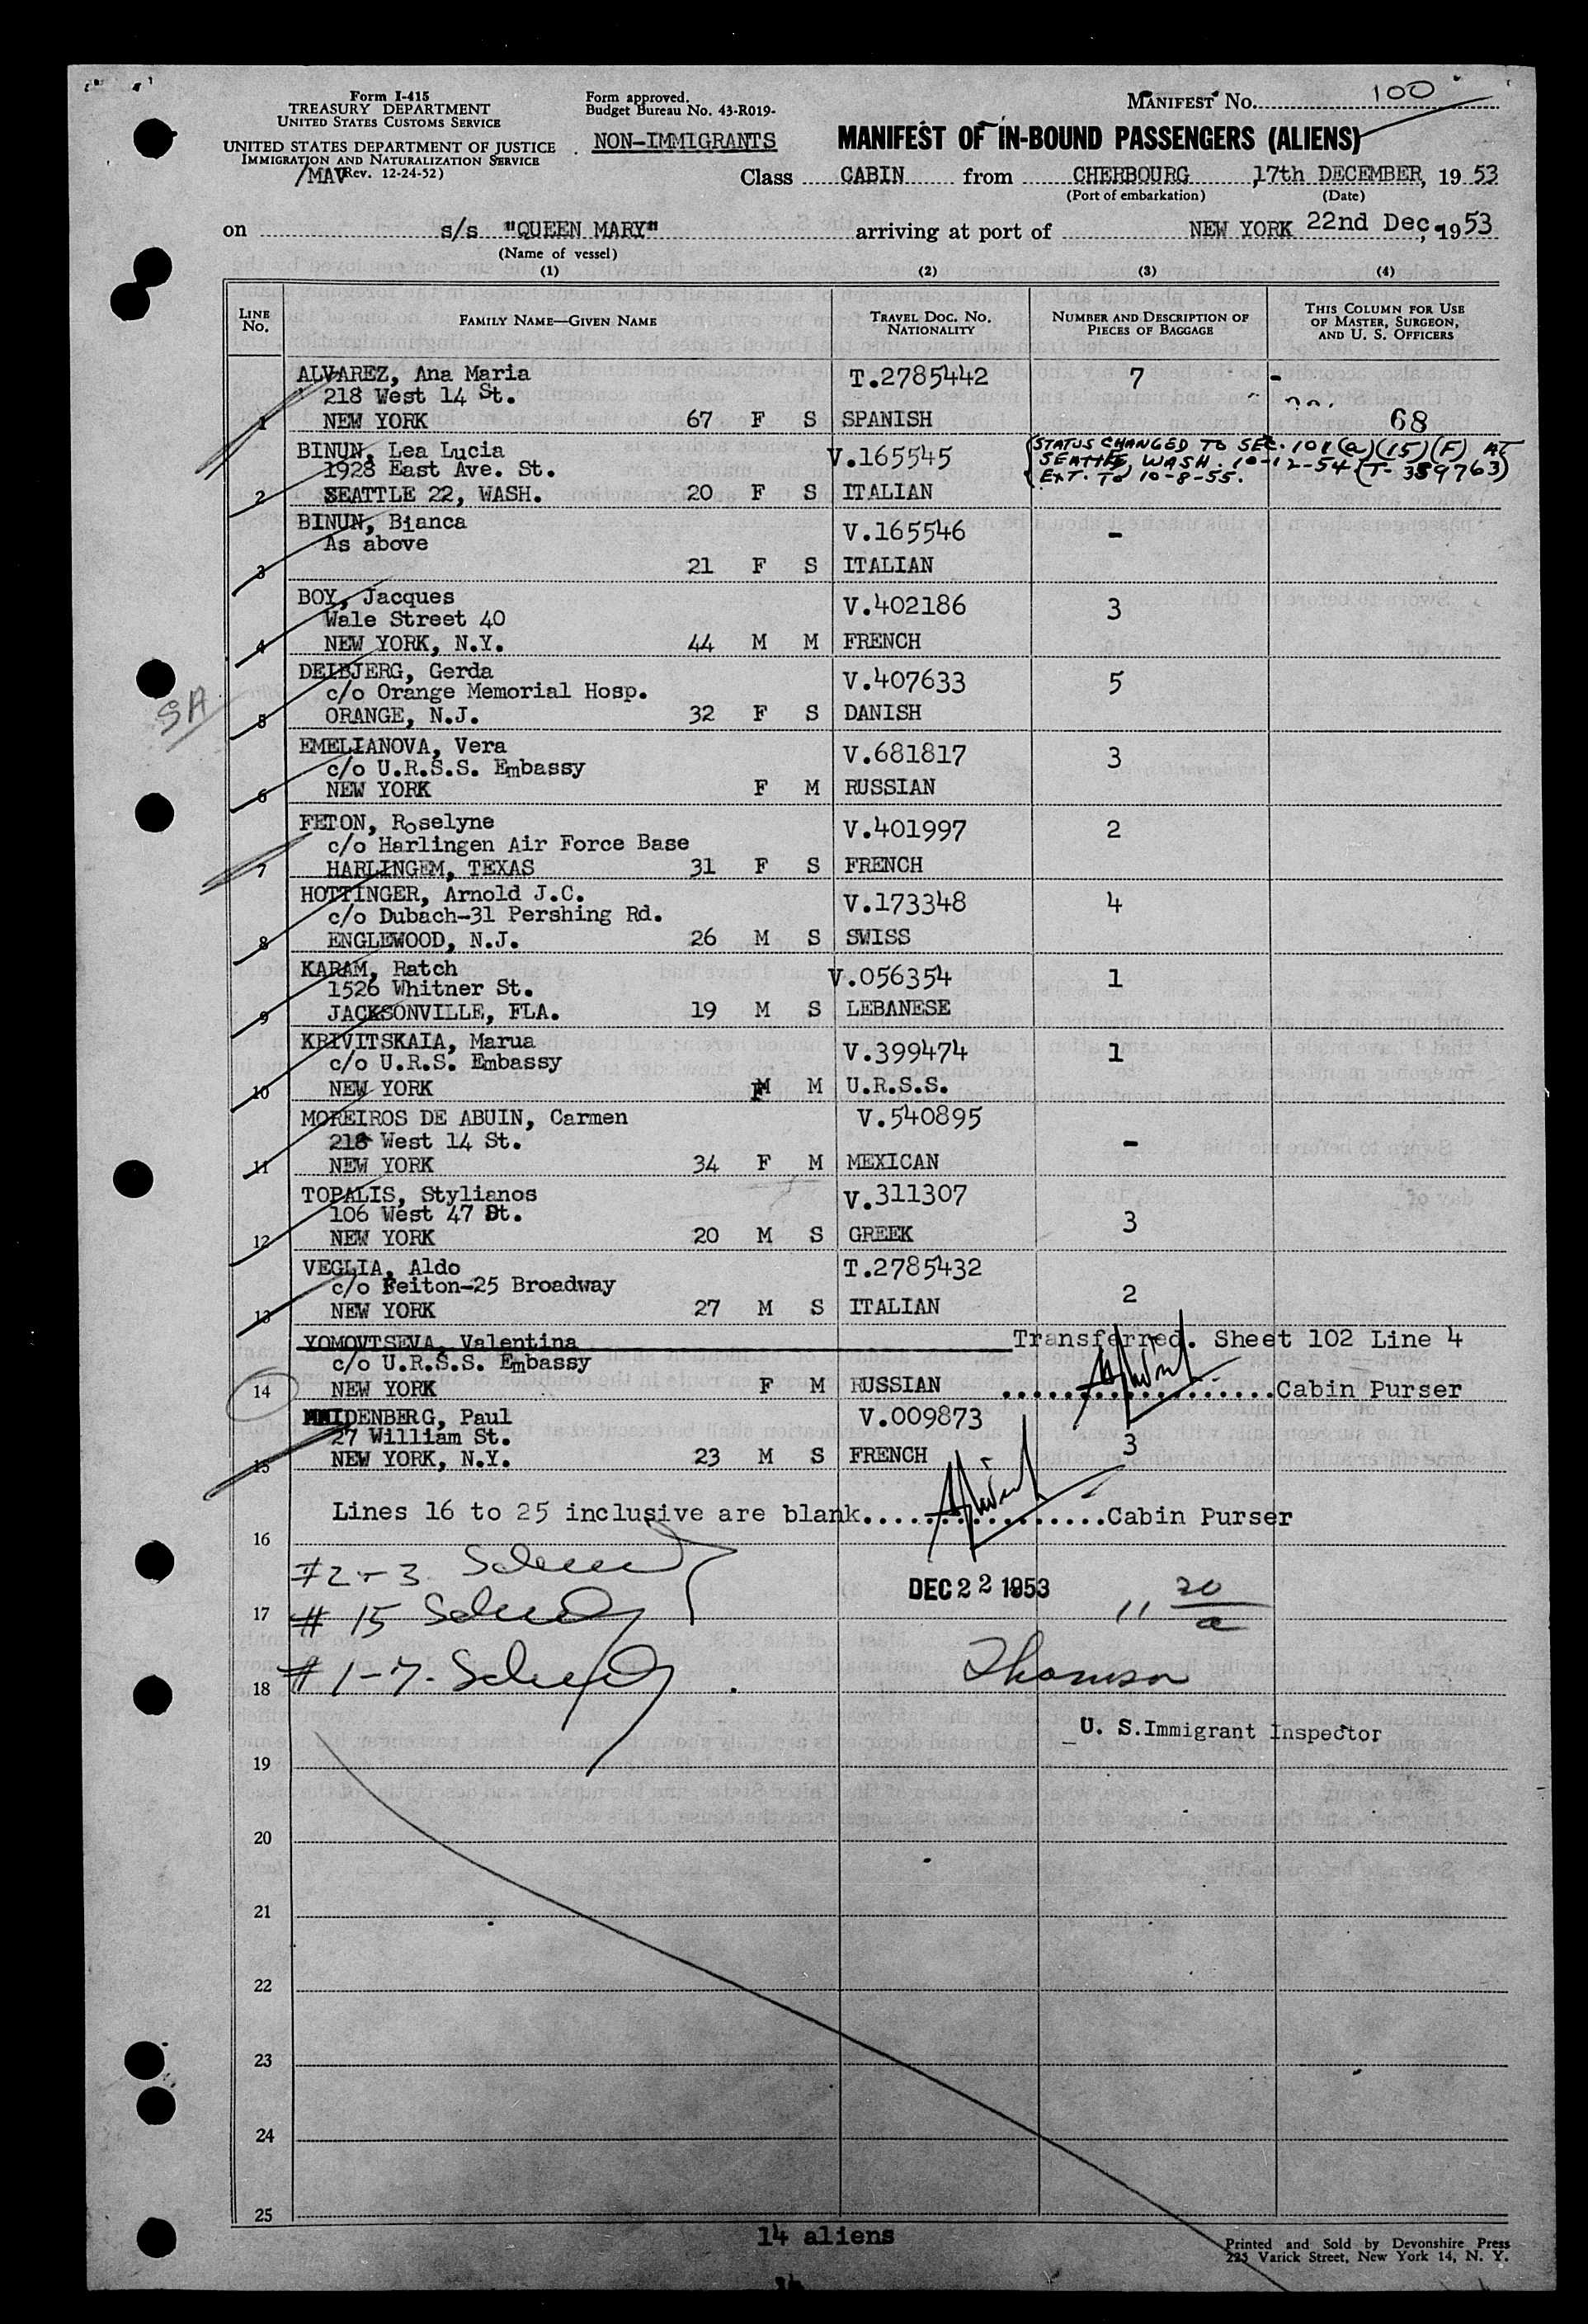 Form I-415
TREASURY DEPARTMENT
UNITED STATES CUSTOMS SERVICE
UNITED STATES DEPARTMENT OF JUSTICE
IMMIGRATION AND NATURALIZATION SERVICE
/MAV Rev. 12-24-52)
Form approved.
Budget Bureau No. 43-R019-
NON-IMMIGRANTS
MANIFEST No. 100
MANIFEST OF IN-BOUND PASSENGERS (ALIENS)
Class CABIN from CHERBOURG, 17th DECEMBER, 19 53
(Port of embarkation) (Date)
on s/s "QUEEN MARY" arriving at port of NEW YORK 22nd Dec, 19 53
(Name of vessel)
(1) (2) (3) (4)
LINE No. FAMILY NAME—GIVEN NAME TRAVEL DOC. NO. NATIONALITY NUMBER AND DESCRIPTION OF PIECES OF BAGGAGE THIS COLUMN FOR USE OF MASTER, SURGEON, AND U. S. OFFICERS
ALVAREZ, Ana Maria T.2785442 7 -
218 West 14 St.
1 NEW YORK 67 F S SPANISH 68
BINUN, Lea Lucia V.165545 (STATUS CHANGED TO SEC. 101(a)(15)(F) AT
1928 East Ave. St. SEATTLE, WASH. 10-12-54 (T-359763)
2 SEATTLE 22, WASH. 20 F S ITALIAN EXT. TO 10-8-55.
BINUN, Bianca V.165546 -
As above
3 21 F S ITALIAN
BOY, Jacques V.402186 3
Wale Street 40
4 NEW YORK, N.Y. 44 M M FRENCH
DEIBJERG, Gerda V.407633 5
c/o Orange Memorial Hosp.
SA
5 ORANGE, N.J. 32 F S DANISH
EMELIANOVA, Vera V.681817 3
c/o U.R.S.S. Embassy
6 NEW YORK F M RUSSIAN
FETON, Roselyne V.401997 2
c/o Harlingen Air Force Base
7 HARLINGEM, TEXAS 31 F S FRENCH
HOTTINGER, Arnold J.C. V.173348 4
c/o Dubach-31 Pershing Rd.
8 ENGLEWOOD, N.J. 26 M S SWISS
KARAM, Ratch V.056354 1
1526 Whitner St.
9 JACKSONVILLE, FLA. 19 M S LEBANESE
KRIVITSKAIA, Marua V.399474 1
c/o U.R.S. Embassy
10 NEW YORK F M U.R.S.S.
MOREIROS DE ABUIN, Carmen V.540895 -
218 West 14 St.
11 NEW YORK 34 F M MEXICAN
TOPALIS, Stylianos V.311307 3
106 West 47 St.
12 NEW YORK 20 M S GREEK
VEGLIA, Aldo T.2785432 2
c/o Feiton-25 Broadway
13 NEW YORK 27 M S ITALIAN
YOMOVTSEVA, Valentina Transferred. Sheet 102 Line 4
c/o U.R.S.S. Embassy
14 NEW YORK F M RUSSIAN ....................Cabin Purser
MAIDENBERG, Paul V.009873 3
27 William St.
15 NEW YORK, N.Y. 23 M S FRENCH
Lines 16 to 25 inclusive are blank..................Cabin Purser
16
#2-3
DEC 22 1953
17 # 15
# 1-7-
Thomson
18
U. S. Immigrant Inspector
19
20
21
22
23
24
25
14 aliens
Printed and Sold by Devonshire Press
225 Varick Street, New York 14, N. Y.